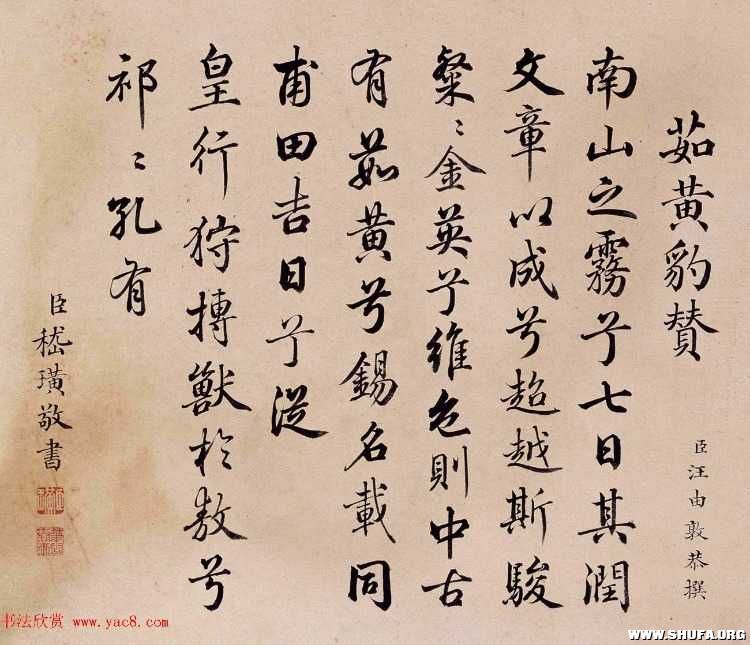 茹黄豹赞
臣汪由敦恭撰
南山之霧兮七日其潤
文章以成兮超越斯駿
粲〻金英兮維色則中古
有茹黄兮錫名載同
甫田吉日兮從
皇行狩搏獸於敖兮
祁〻孔有
臣嵇璜敬書
书法欣赏 www.yac8.com
WWW.SHUFA.ORG